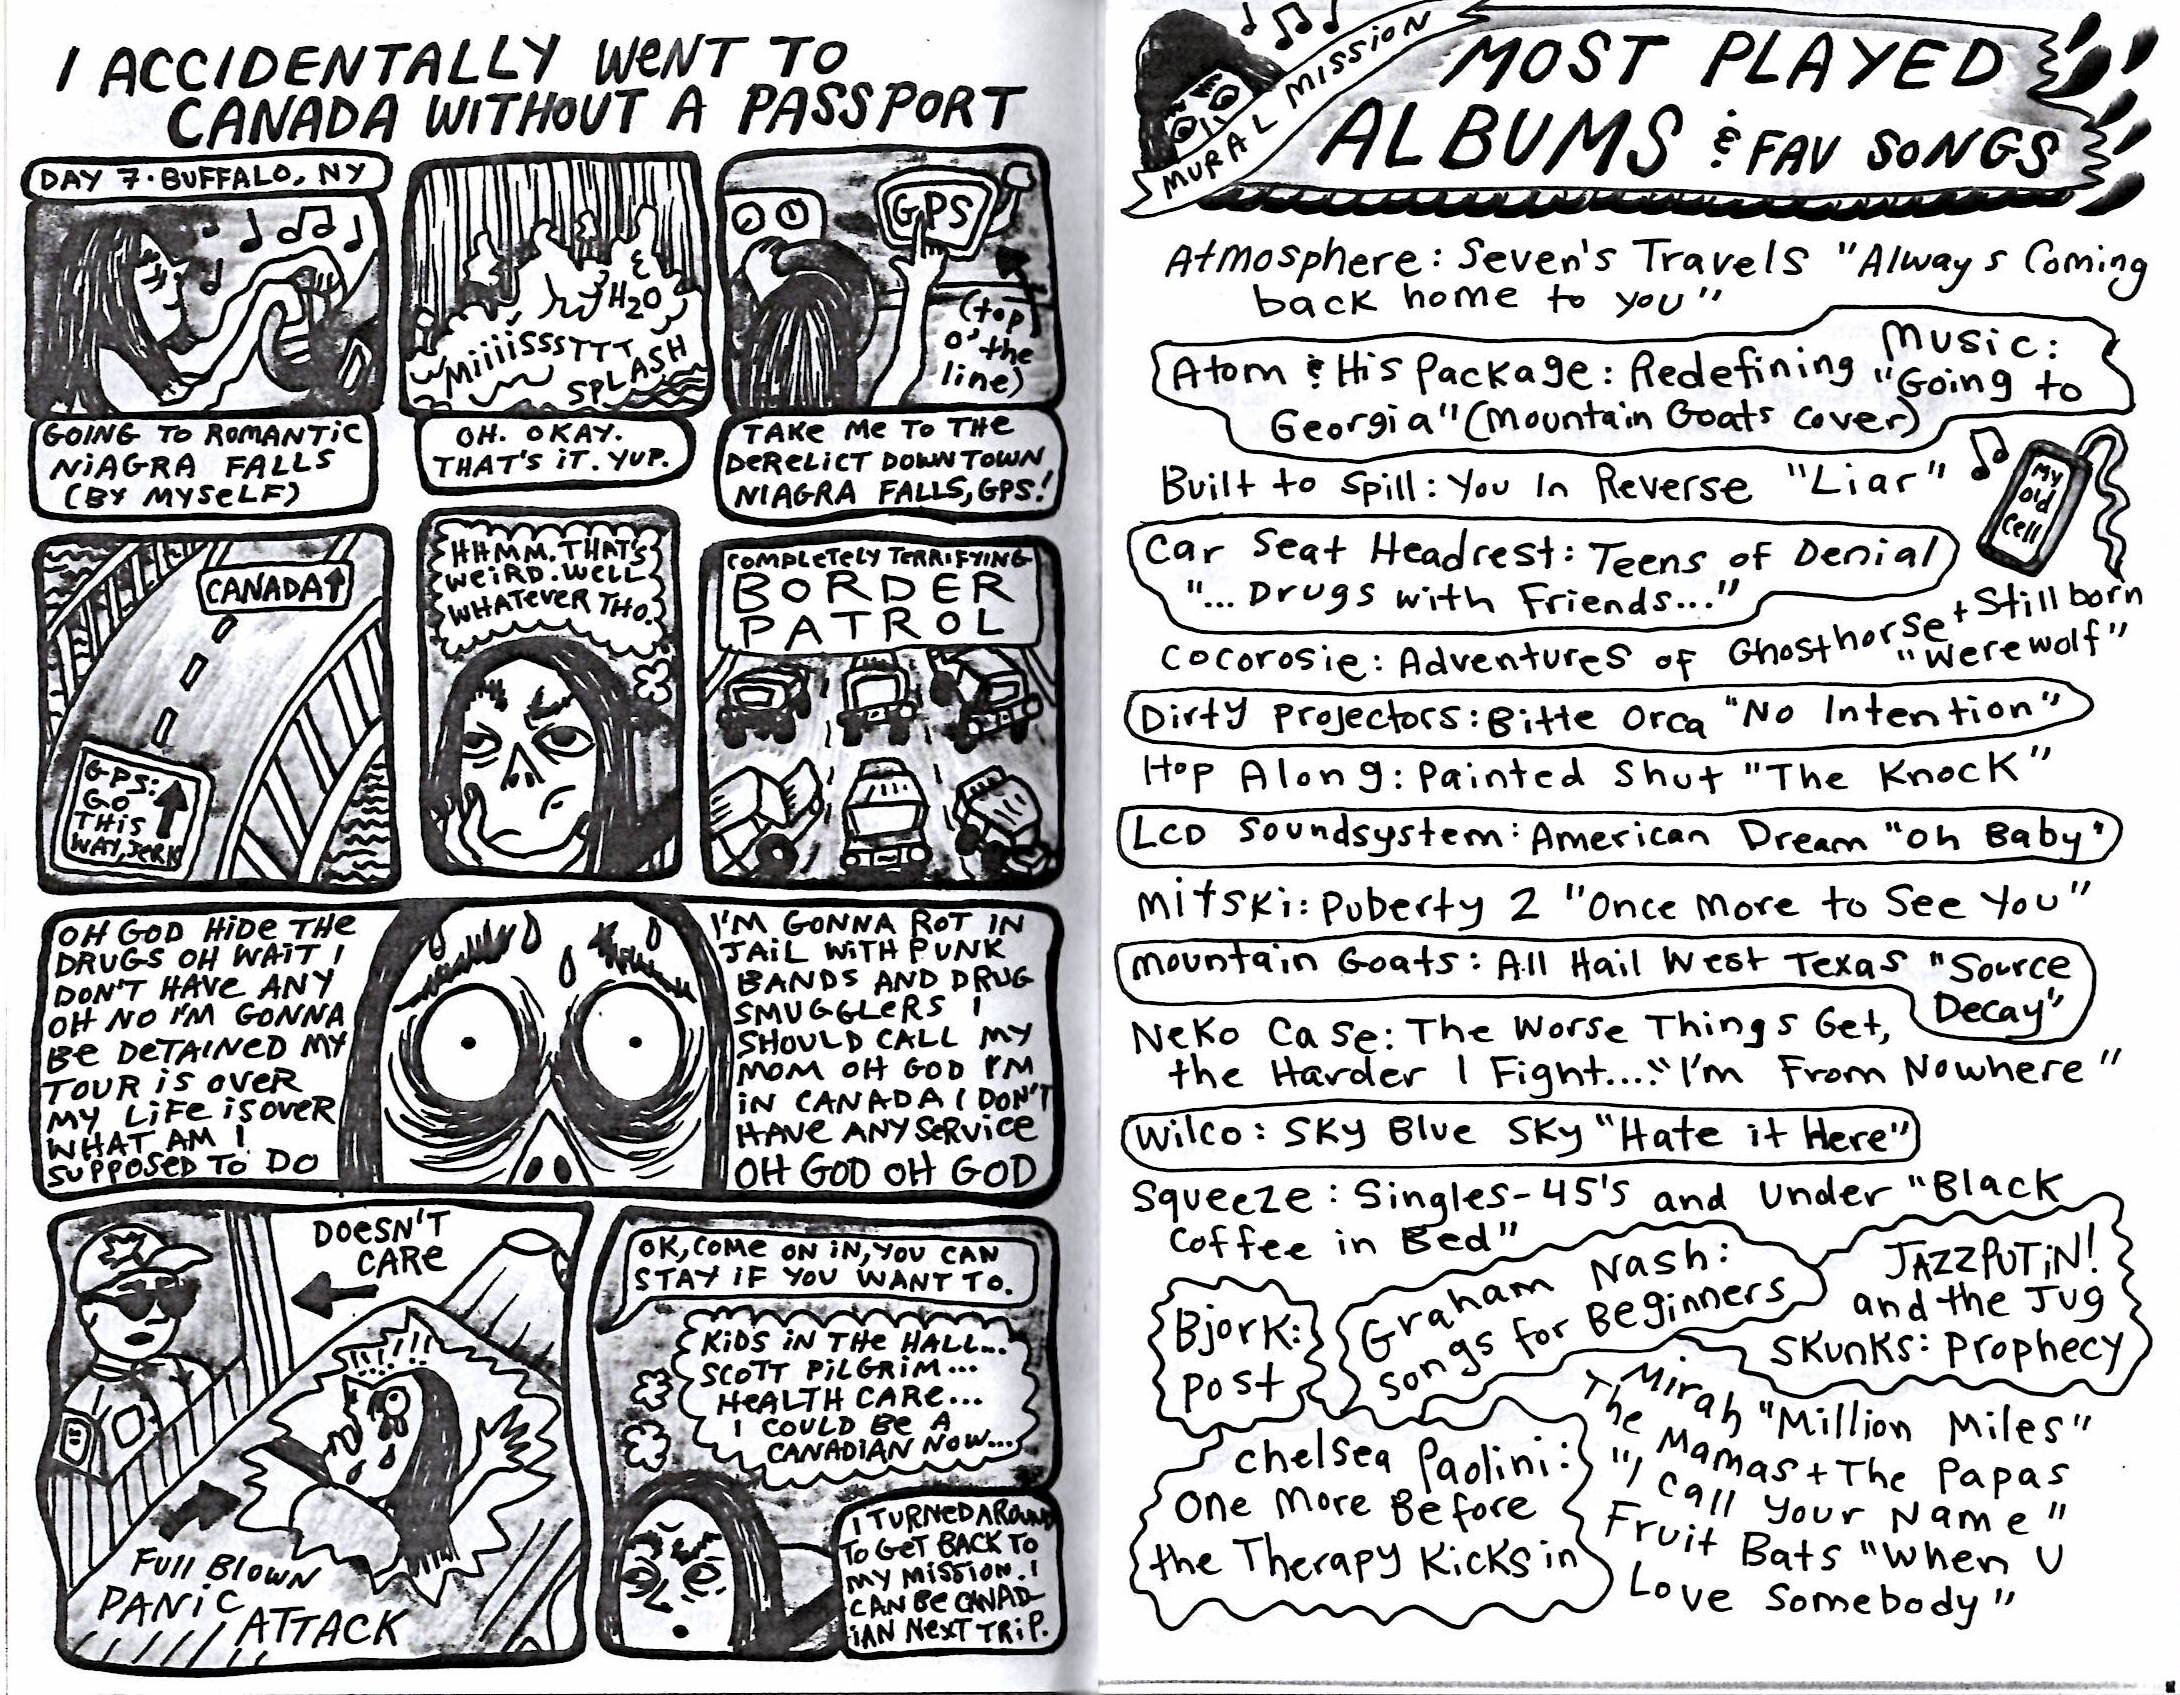 I ACCIDENTALLY WENT TO
CANADA WITHOUT A PASSPORT
DAY 7 · BUFFALO, NY
GOING TO ROMANTIC
NIAGRA FALLS
(BY MYSELF)
H2O
MiiiiSSSTTT
SPLASH
OH. OKAY.
THAT'S IT. YUP.
GPS
(top
o' the
line)
TAKE ME TO THE
DERELICT DOWNTOWN
NIAGRA FALLS, GPS!
CANADA↑
GPS:
GO
THIS
WAY, JERK
HHMM. THAT'S
WEIRD. WELL
WHATEVER THO.
COMPLETELY TERRIFYING
BORDER
PATROL
OH GOD HIDE THE
DRUGS OH WAIT I
DON'T HAVE ANY
OH NO I'M GONNA
BE DETAINED MY
TOUR IS OVER
MY LIFE IS OVER
WHAT AM I
SUPPOSED TO DO
I'M GONNA ROT IN
JAIL WITH PUNK
BANDS AND DRUG
SMUGGLERS I
SHOULD CALL MY
MOM OH GOD I'M
IN CANADA I DON'T
HAVE ANY SERVICE
OH GOD OH GOD
DOESN'T
CARE
!!!!!!
FULL BLOWN
PANIC
ATTACK
OK, COME ON IN, YOU CAN
STAY IF YOU WANT TO.
KIDS IN THE HALL...
SCOTT PILGRIM...
HEALTH CARE...
I COULD BE A
CANADIAN NOW...
I TURNED AROUND
TO GET BACK TO
MY MISSION. I
CAN BE CANAD-
IAN NEXT TRIP.
MURAL MISSION
MOST PLAYED
ALBUMS & FAV SONGS
Atmosphere: Seven's Travels "Always Coming
back home to you"
Atom & His Package: Redefining Music:
"Going to
Georgia" (Mountain Goats cover)
Built to Spill: You In Reverse "Liar"
My
old
cell
Car Seat Headrest: Teens of Denial
"... Drugs with Friends..."
Cocorosie: Adventures of Ghosthorse + Stillborn
"Werewolf"
Dirty Projectors: Bitte Orca "No Intention"
Hop Along: Painted Shut "The Knock"
LCD Soundsystem: American Dream "Oh Baby"
Mitski: Puberty 2 "Once More to See You"
Mountain Goats: All Hail West Texas "Source
Decay"
Neko Case: The Worse Things Get,
the Harder I Fight...: "I'm From Nowhere"
Wilco: Sky Blue Sky "Hate it Here"
Squeeze: Singles-45's and Under "Black
Coffee in Bed"
Bjork:
Post
Graham Nash:
Songs for Beginners
JAZZPUTIN!
and the Jug
Skunks: Prophecy
Mirah "Million Miles"
The Mamas + The Papas
"I Call Your Name"
Fruit Bats "When U
Love Somebody"
Chelsea Paolini:
One More Before
the Therapy Kicks in